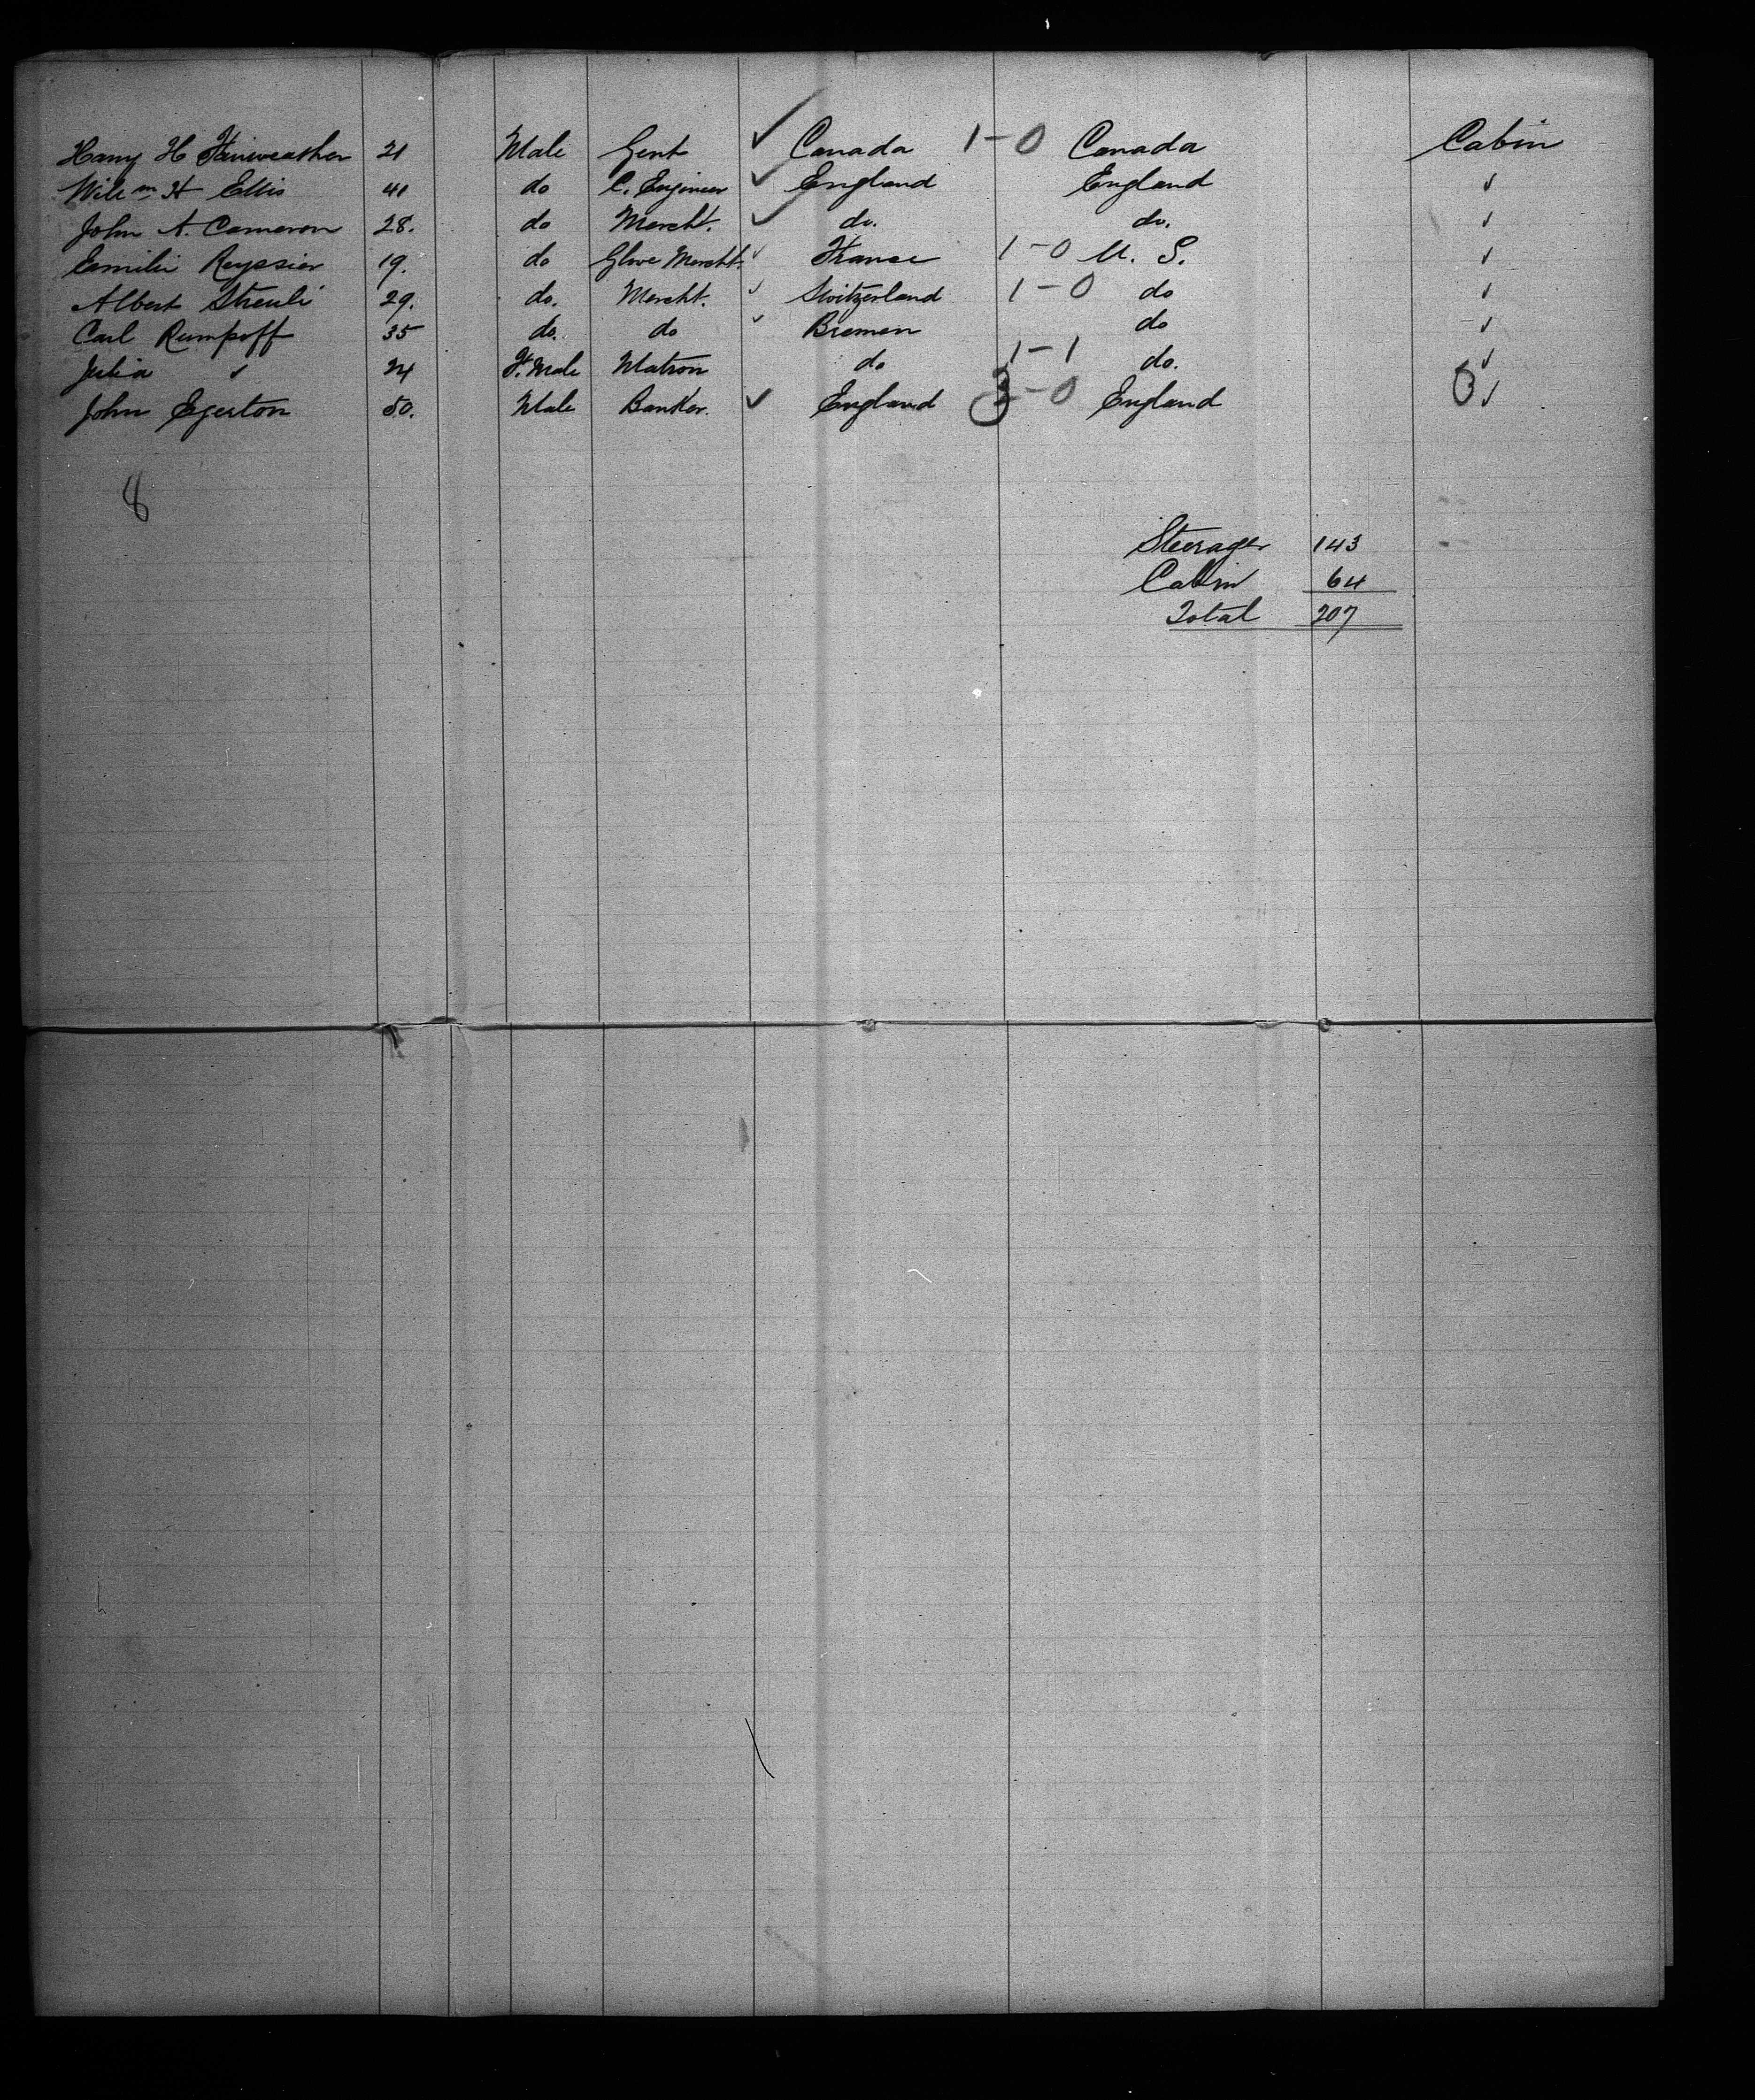 Harry H Fairweather 21 Male Gent ✓ Canada 1-0 Canada Cabin
Willm H Ellis 41 do C. Engineer ✓ England England ✓
John A. Cameron 28. do Mercht. ✓ do. do. ✓
Emilie Reyssier 19. do Glove Mercht. ✓ France 1-0 U. S. ✓
Albert Streuli 29. do. Mercht. ✓ Switzerland 1-0 do ✓
Carl Rumpoff 35 do. do ✓ Bremen do ✓
Julia ✓ 24 F. Male Matron do 1-1 do. ✓
John Egerton 50. Male Banker. ✓ England 3-0 England ✓
8
Steerage 143
Cabin 64
Total 207